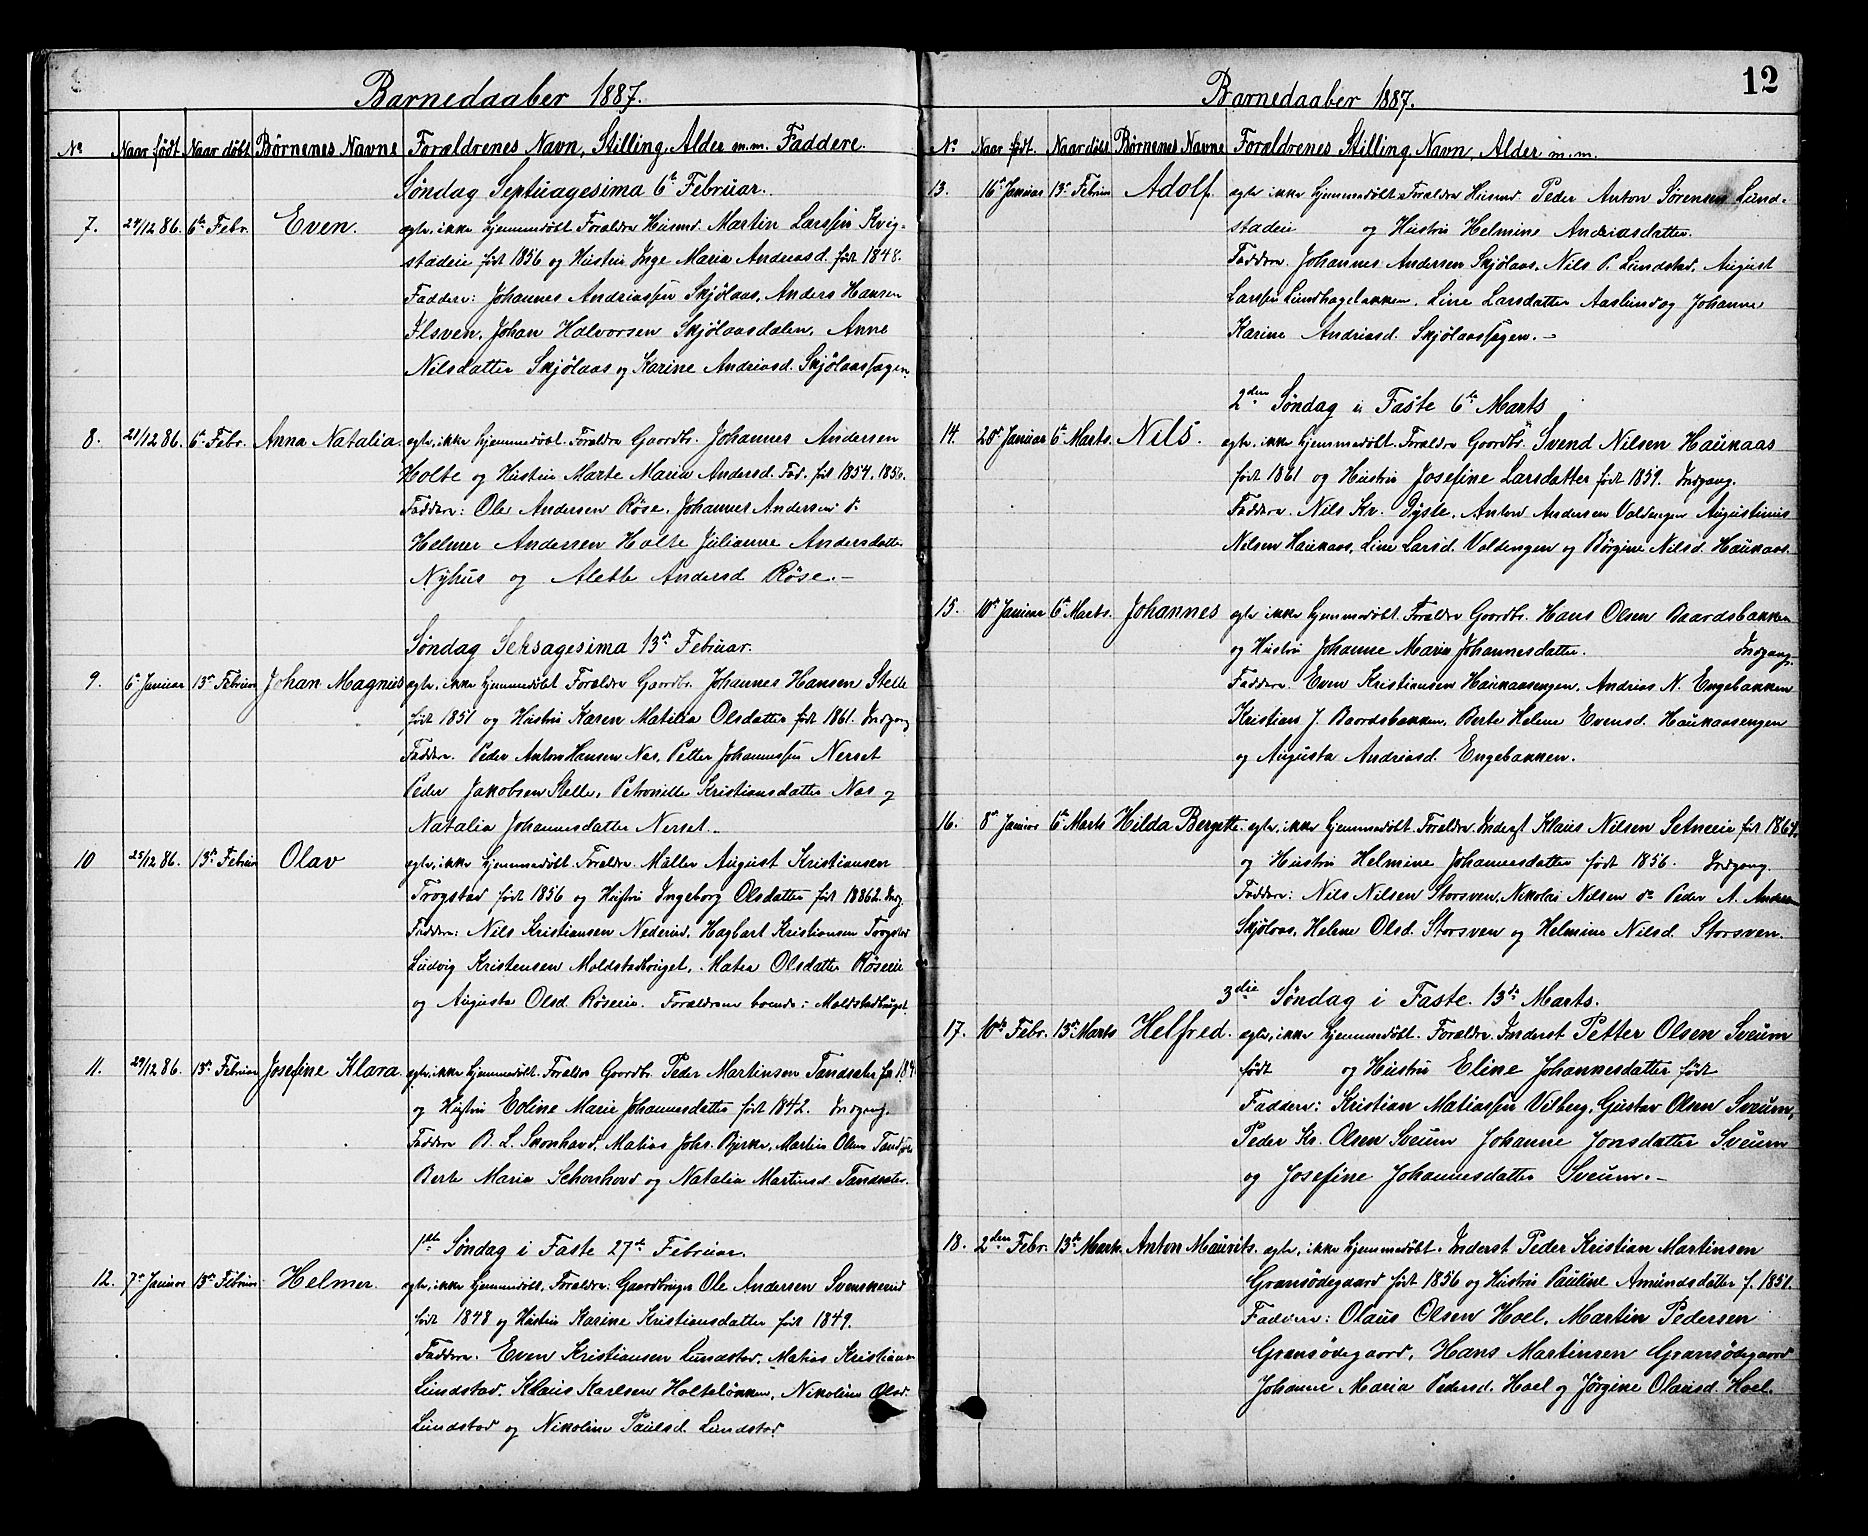 Barnedaaber 1887.
No Naar født. Naar døbt Børnenes Navne Forældrenes Navn, Stilling, Alder m.m. Faddere.
Søndag Septuagesima 6te Februar.
7. 24/12 86. 6te Febr. Even. egte, ikke hjemmedøbt. Forældre Husmd. Martin Larssen Kvig-
stadeie født 1856 og Hustru Inge Marie Andreasd. født 1848.
Faddere: Johannes Andreassen Skjölaas, Anders Hansen
Ilsven, Johan Halvorsen Skjölaasdalen, Anne
Nilsdatter Skjölaas og Karine Andreasd. Skjölaashagen
8. 21/12 86. 6te Febr. Anna Natalia. egte, ikke hjemmedøbt. Forældre Gaardbr. Johannes Andersen
Holte og Hustru Marte Marie Andersd. Fød. født 1854. 1856.
Faddere: Ole Andersen Röse, Johannes Andersen do
Helmer Andersen Holte Julianne Andersdatter
Nyhus og Alette Andersd Röse.—
Søndag Seksagesima 13de Februar.
9. 6te Januar 13de Februar Johan Magnus egte, ikke hjemmedøbt Forældre Gaardbr. Johannes Hansen Stelle
født 1851 og Hustru Karen Matilia Olsdatter født 1861. Indgang
Faddere. Peder Anton Hansen Nas, Petter Johannessen Nerset
Peder Jakobsen Stelle, Petronille Kristiansdatter Nas og
Natalia Johannesdatter Nerset.—
10 25/12 86. 13de Februar Olav egte, ikke hjemmedøbt. Forældre. Møller August Kristiansen
Trogstad født 1856 og Hustru Ingeborg Olsdatter født 18862. Indg.
Faddere: Nils Kristiansen Nederud, Hagbart Kristiansen Trogstad
Ludvig Kristensen Moldstadbruget, Matea Olsdatter Röseeie
og Augusta Olsd. Röseeie. Forældrene boende: Moldstadbruget.
11. 29/12 86. 13de Februar Josefine Klara. egte, ikke hjemmedøbt. Forældre Gaardbr. Peder Martinsen Tandsæter
og Hustru Eoline Marie Johannesdatter født 1842. Indgang.
Faddere B. L. Skonhovd, Matias Johs. Bjerke, Martin Olsen
Berte Marie Schonhovd og Natalia Martinsd. Tandsæter.
1ste Søndag i Faste 27de Februar.
12. 7de Januar 13de Februar Helmer. egte, ikke hjemmedøbt. Forældre. Gaardbruger Ole Andersen Svenskerud
født 1848 og Hustru Karine Kristiansdatter født 1849.
Faddere. Even Kristiansen Lundstad, Matias Kristiansen
Lundstad. Klaus Karlsen Holteløkken, Nikoline Olsd.
Lundstad og Nikoline Paulsd. Lundstad
Barnedaaber 1887.
12
No Naar født. Naar døbt Børnenes Navne Forældrenes Stilling, Navn, Alder m.m.
13. 16de Januar 13de Februar Adolf. egte ikke hjemmedøbt. Forældre Husmd Peder Anton Sørensen Lund-
stadeie og Hustru Helmine Andreasdatter.
Faddere. Johannes Andersen Skjölaas, Nils P. Lundstad, August
Larssen Lundhagebakken. Line Larsdatter Aaslund og Johanne
Karine Andreasd. Skjölaashagen.—
2den Søndag i Faste 6te Marts
14. 20de Januar 6te Marts. Nils. egte, ikke hjemmedøbt Forældre Gaardbr. Svend Nilsen Haukaas
født 1861 og Hustru Josefine Larsdatter født 1859. Indgang.
Faddere. Nils Kr. Dyste, Anton Andersen Voldengen Augustinus
Nilsen Haukaas, Line Larsd. Voldengen og Børgine Nilsd. Haukaas.
15. 10de Januar 6te Marts. Johannes egte, ikke hjemmedøbt. Forældre Gaardbr. Hans Olsen Baardsbakken
og Hustru Johanne Marie Johannesdatter. Indgang.
Faddere. Even Kristiansen Haukaasengen, Andreas N. Engebakken
Kristian J. Baardsbakken, Berte Helene Evensd. Haukaasengen
og Augusta Andreasd. Engebakken.
16. 8de Januar 6te Marts Hilda Bergette. egte, ikke hjemmedøbt. Forældre. Inderst Klaus Nilsen Setneeie født 1864.
og Hustru Helmine Johannesdatter født 1856. Indgang.
Faddere: Nils Nilsen Storsven, Nikolai Nilsen do Peder A. Andersen
Skjölaas, Helene Olsd. Storsven og Helmine Nilsd. Storsven.
3die Søndag i Faste. 13de Marts.
17. 10de Febr. 13de Marts Helfred. egte, ikke hjemmedøbt. Forældre. Inderst Petter Olsen Sveum
født og Hustru Eline Johannesdatter født
Faddere: Kristian Matiassen Vilberg, Gustav Olsen Sveum,
Peder Kr. Olsen Sveum Johanne Jonsdatter Sveum
og Josefine Johannesdatter Sveum.—
18. 2den Febr. 13de Marts. Anton Mauvits. egte, ikke hjemmedøbt. Inderst Peder Kristian Martinsen
Gransødegaard født 1856 og Hustru Pauline Amundsdatter f. 1851.
Faddere: Olaus Olsen Hoel, Martin Pedersen
Gransødegaard, Hans Martinsen Gransødegaard
Johanne Maria Pedersd. Hoel og Jørgine Olausd. Hoel.